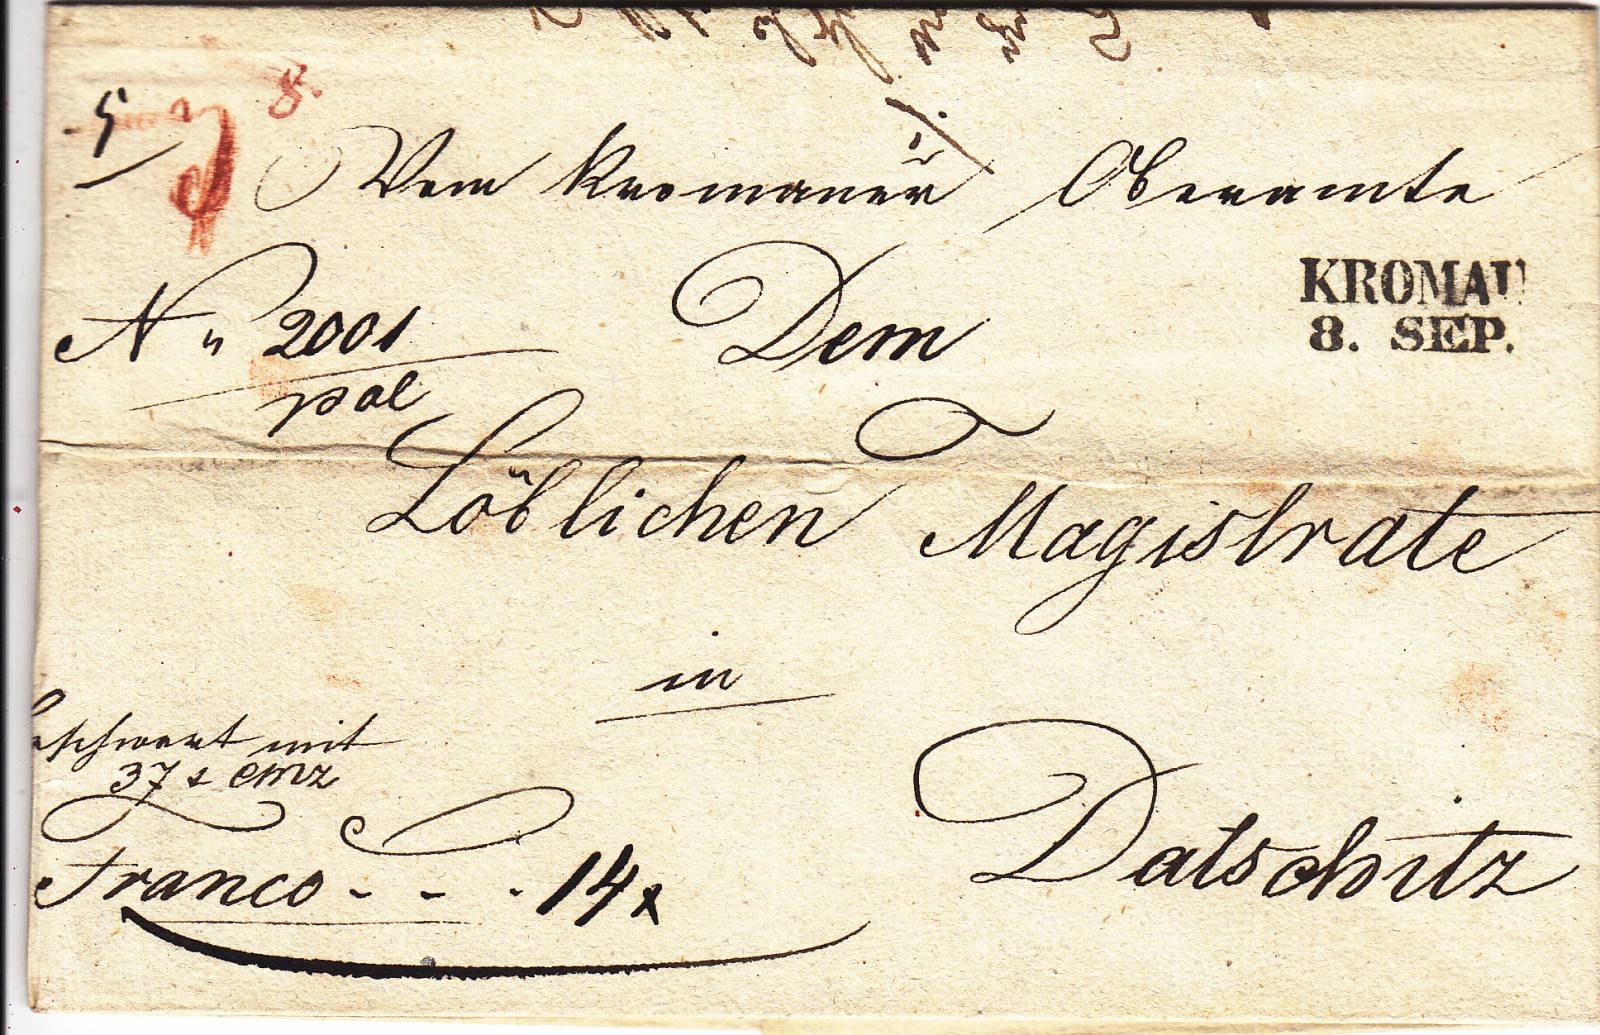 5
8.
Vom Kromauer Oberamte
KROMAU
8. SEP.
N" 2001
pol
Dem
Löblichen Magistrate
in
beschwert mit
37 x CMz
Franco - - - 14x
Datschitz